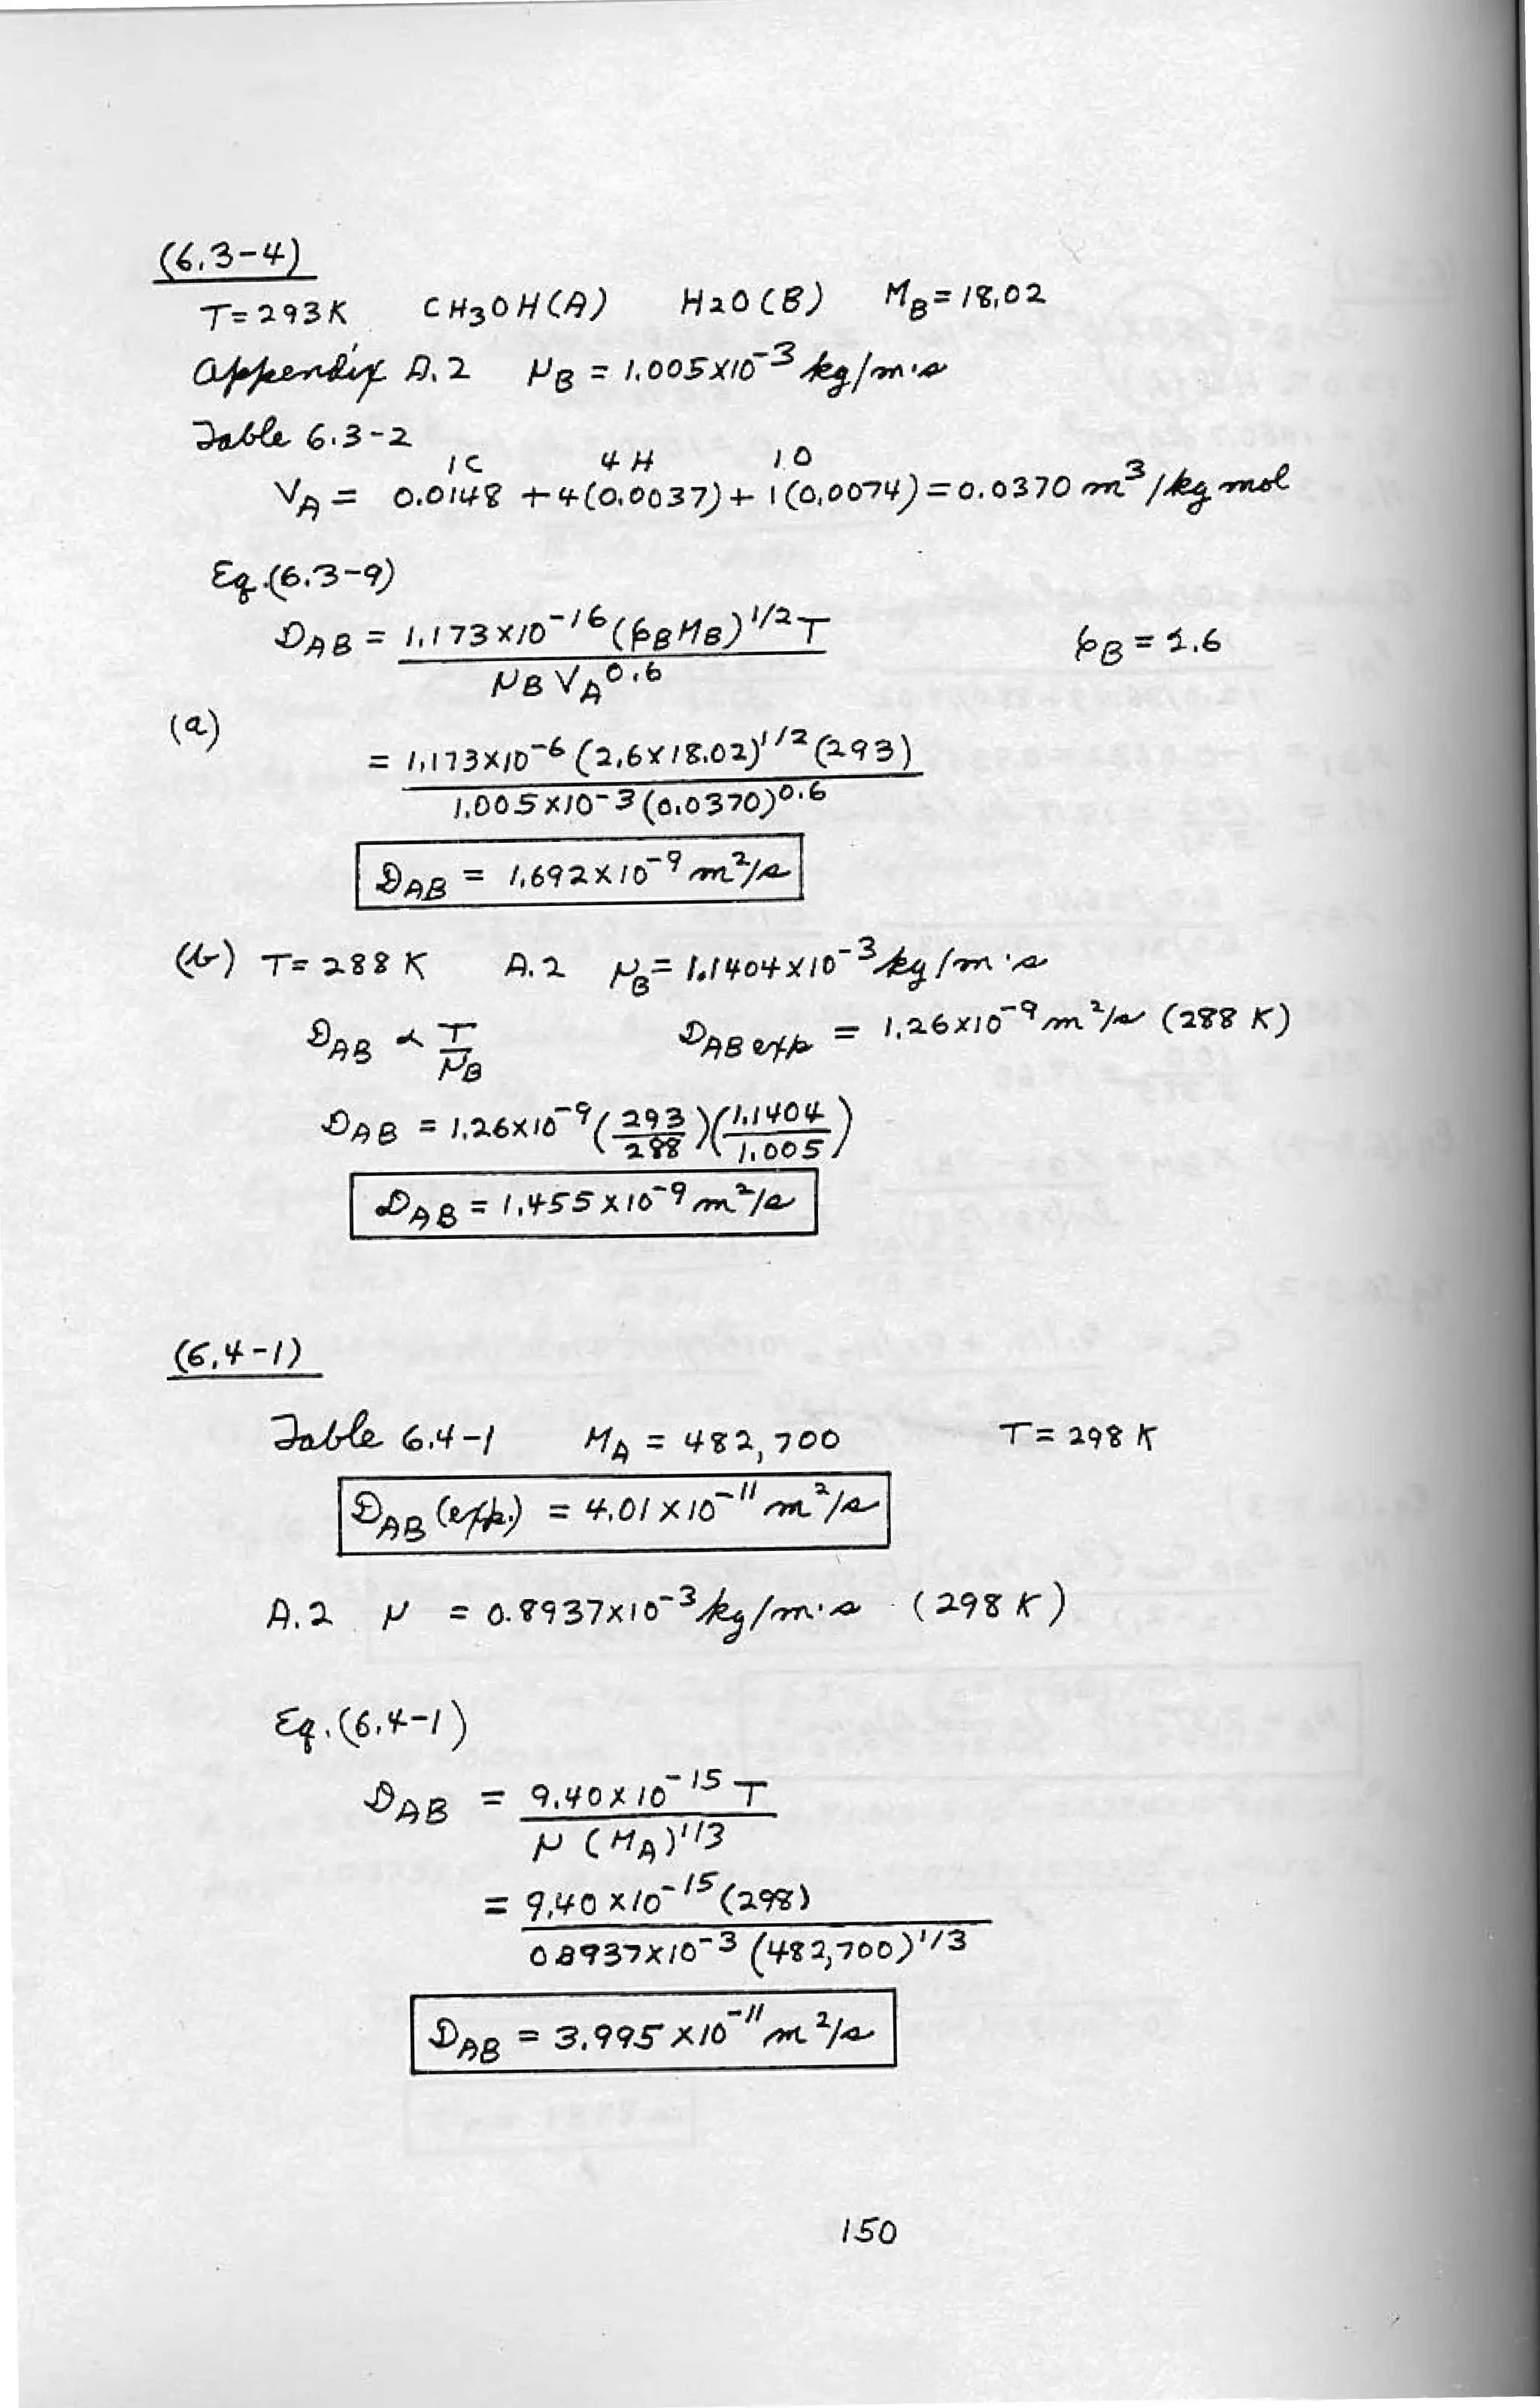 (6.3-4)
T=293K CH3OH(A) H2O(B) MB=18.02
Appendix A.2 μB = 1.005×10⁻³ kg/m·s
Table 6.3-2
1C 4H 1O
VA = 0.0148 + 4(0.0037) + 1(0.0074) = 0.0370 m³/kg mol
Eq.(6.3-9)
DAB = 1.173×10⁻¹⁶(φBMB)^1/2 T
μB VA^0.6
φB = 2.6
(a)
= 1.173×10⁻⁶(2.6×18.02)^1/2(293)
1.005×10⁻³(0.0370)^0.6
DAB = 1.692×10⁻⁹ m²/s
(b) T=288 K A.2 μB=1.1404×10⁻³ kg/m·s
DAB ∝ T/μB DAB exp = 1.26×10⁻⁹ m²/s (288 K)
DAB = 1.26×10⁻⁹(293/288)(1.1404/1.005)
DAB = 1.455×10⁻⁹ m²/s
(6.4-1)
Table 6.4-1 MA = 482,700 T=298 K
DAB (exp.) = 4.01×10⁻¹¹ m²/s
A.2 μ = 0.8937×10⁻³ kg/m·s (298 K)
Eq.(6.4-1)
DAB = 9.40×10⁻¹⁵ T
μ (MA)^1/3
= 9.40×10⁻¹⁵(298)
0.8937×10⁻³ (482,700)^1/3
DAB = 3.995×10⁻¹¹ m²/s
150